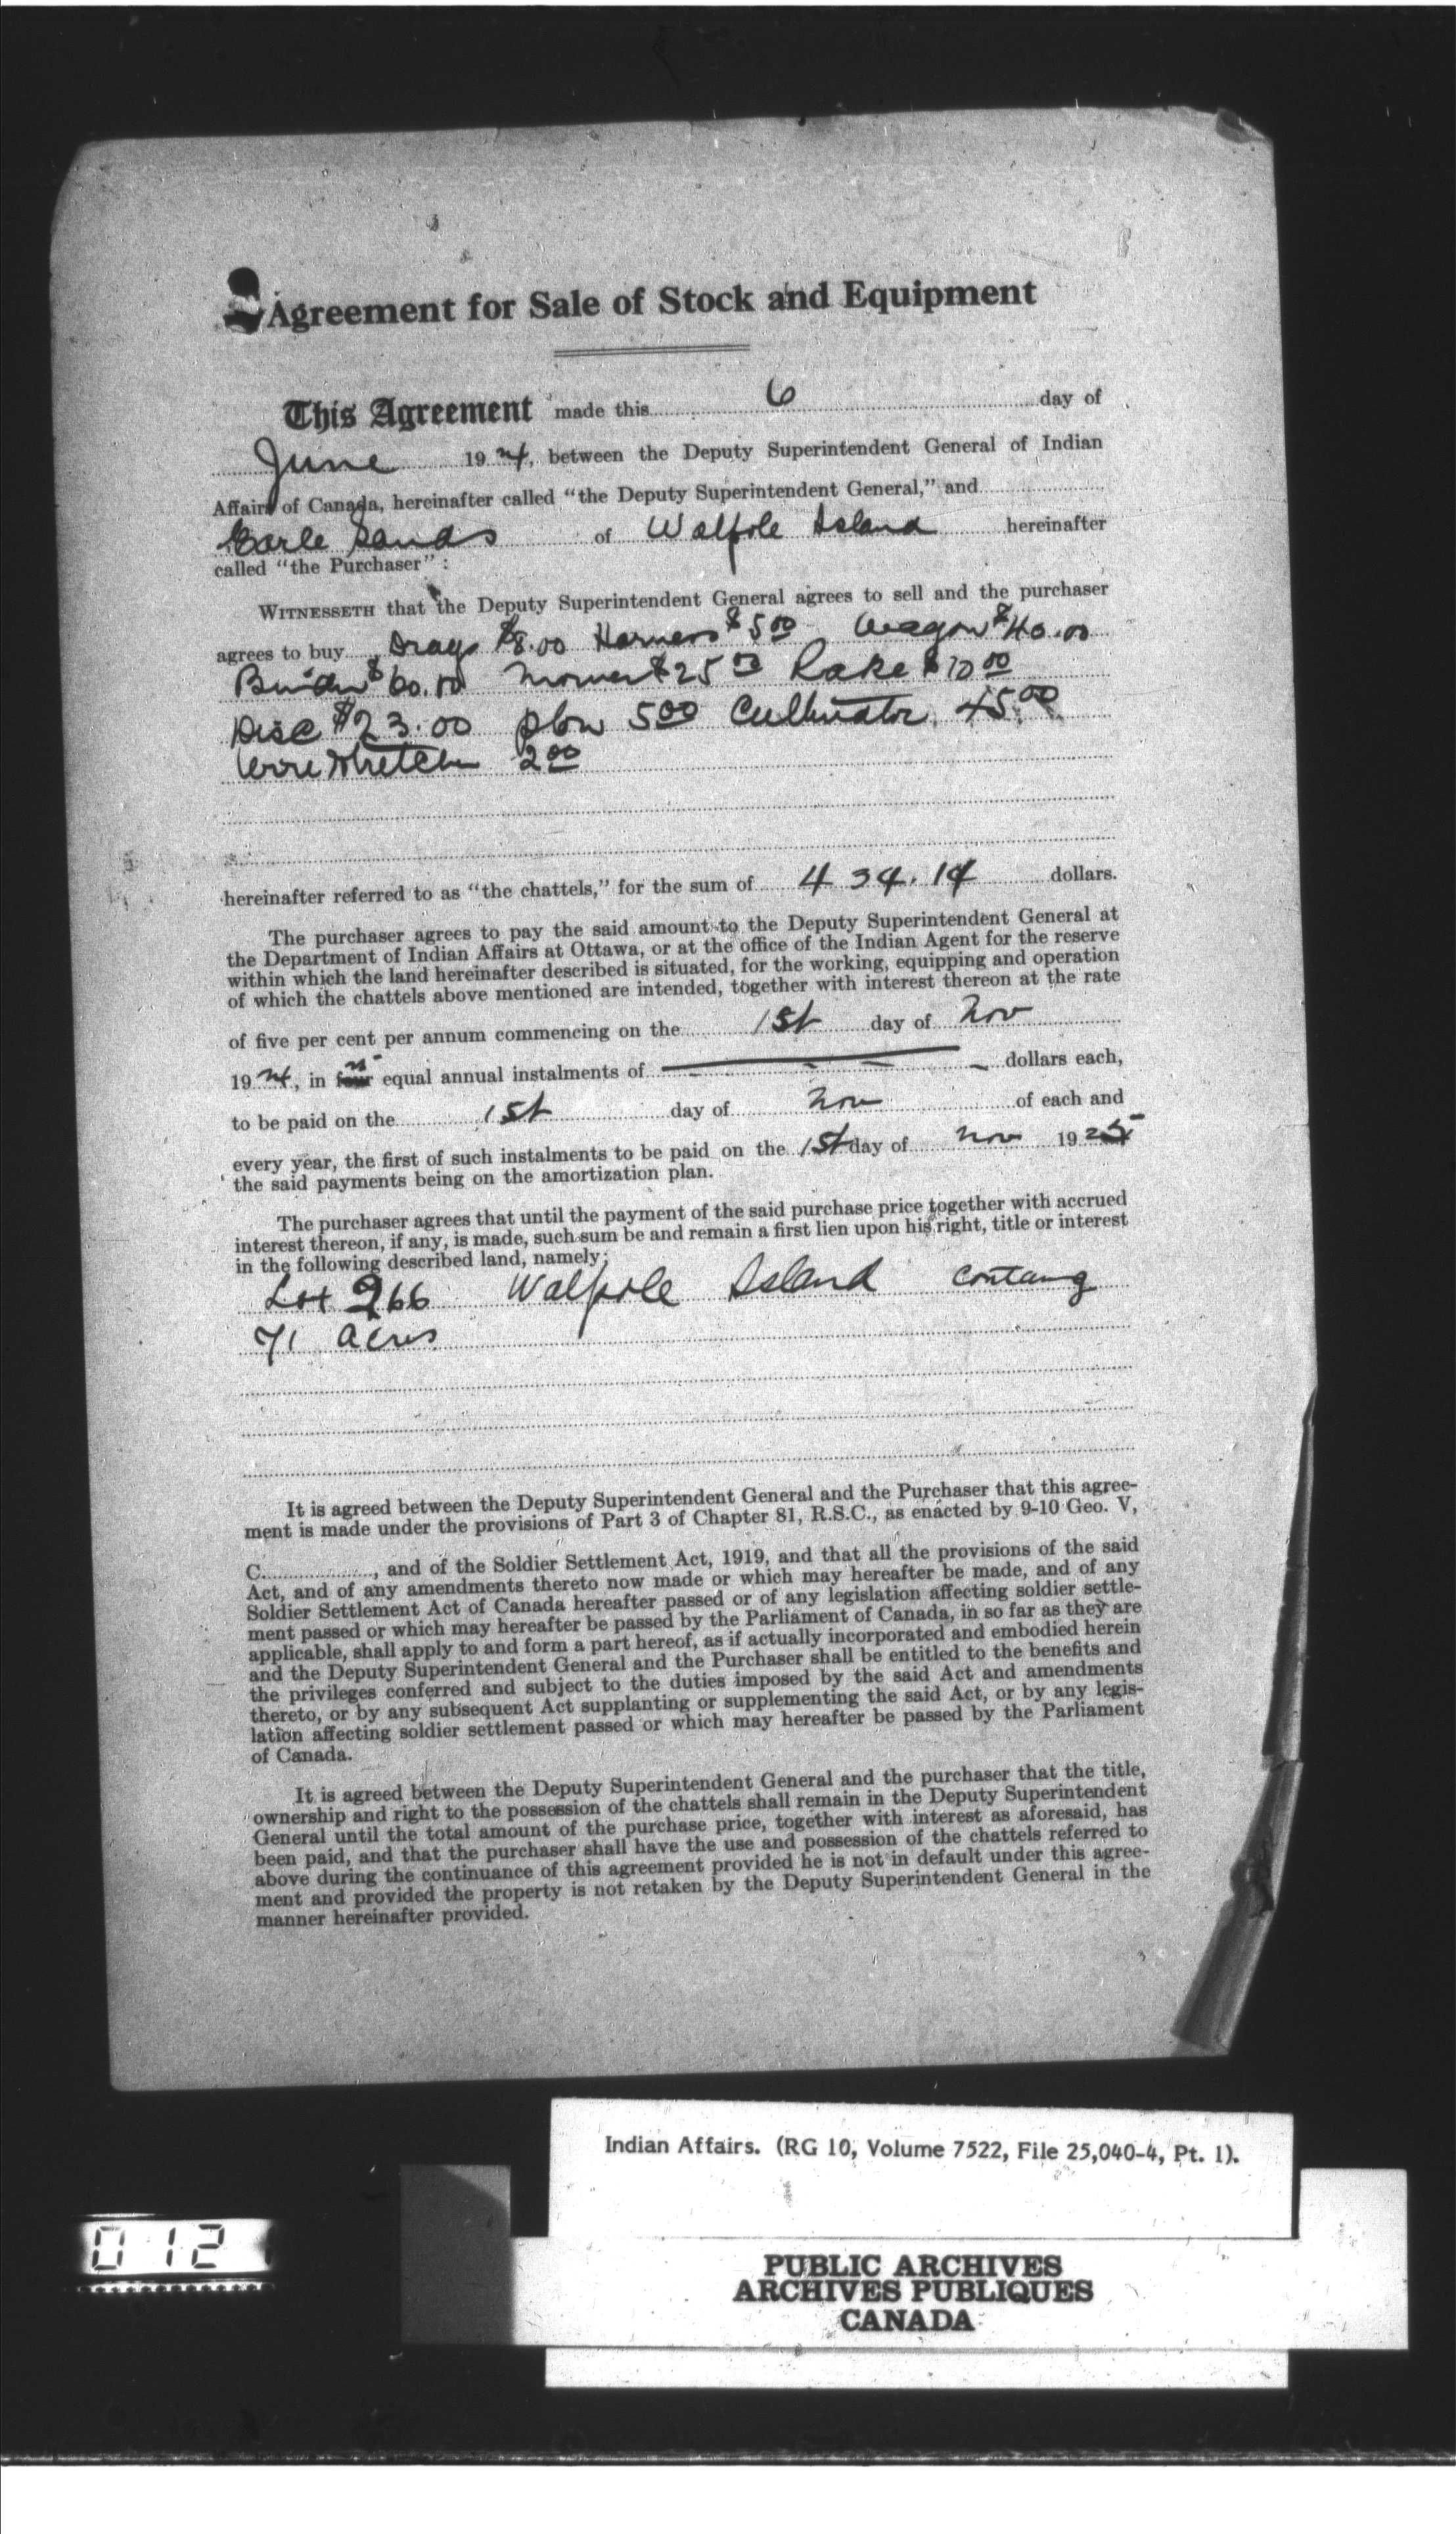 Agreement for Sale of Stock and Equipment
This Agreement made this 6 day of
June 1924, between the Deputy Superintendent General of Indian
Affairs of Canada, hereinafter called "the Deputy Superintendent General," and
Earle Sands of Walpole Island hereinafter
called "the Purchaser":
WITNESSETH that the Deputy Superintendent General agrees to sell and the purchaser
agrees to buy Drags $8.00 Harness $5.00 Wagon $40.00
Binder $60.00 Mower $25.00 Rake $10.00
Disc $23.00 plow 5.00 Cultivator 45.00
Wire Stretcher 2.00
hereinafter referred to as "the chattels," for the sum of 434.14 dollars.
The purchaser agrees to pay the said amount to the Deputy Superintendent General at
the Department of Indian Affairs at Ottawa, or at the office of the Indian Agent for the reserve
within which the land hereinafter described is situated, for the working, equipping and operation
of which the chattels above mentioned are intended, together with interest thereon at the rate
of five per cent per annum commencing on the 1st day of Nov
1924, in equal annual instalments of dollars each,
to be paid on the 1st day of Nov of each and
every year, the first of such instalments to be paid on the 1st day of Nov 1925
the said payments being on the amortization plan.
The purchaser agrees that until the payment of the said purchase price together with accrued
interest thereon, if any, is made, such sum be and remain a first lien upon his right, title or interest
in the following described land, namely;
Lot 266 Walpole Island contang
71 acres
It is agreed between the Deputy Superintendent General and the Purchaser that this agree-
ment is made under the provisions of Part 3 of Chapter 81, R.S.C., as enacted by 9-10 Geo. V,
C. , and of the Soldier Settlement Act, 1919, and that all the provisions of the said
Act, and of any amendments thereto now made or which may hereafter be made, and of any
Soldier Settlement Act of Canada hereafter passed or of any legislation affecting soldier settle-
ment passed or which may hereafter be passed by the Parliament of Canada, in so far as they are
applicable, shall apply to and form a part hereof, as if actually incorporated and embodied herein
and the Deputy Superintendent General and the Purchaser shall be entitled to the benefits and
the privileges conferred and subject to the duties imposed by the said Act and amendments
thereto, or by any subsequent Act supplanting or supplementing the said Act, or by any legis-
lation affecting soldier settlement passed or which may hereafter be passed by the Parliament
of Canada.
It is agreed between the Deputy Superintendent General and the purchaser that the title,
ownership and right to the possession of the chattels shall remain in the Deputy Superintendent
General until the total amount of the purchase price, together with interest as aforesaid, has
been paid, and that the purchaser shall have the use and possession of the chattels referred to
above during the continuance of this agreement provided he is not in default under this agree-
ment and provided the property is not retaken by the Deputy Superintendent General in the
manner hereinafter provided.
Indian Affairs. (RG 10, Volume 7522, File 25,040-4, Pt. 1).
012
PUBLIC ARCHIVES
ARCHIVES PUBLIQUES
CANADA